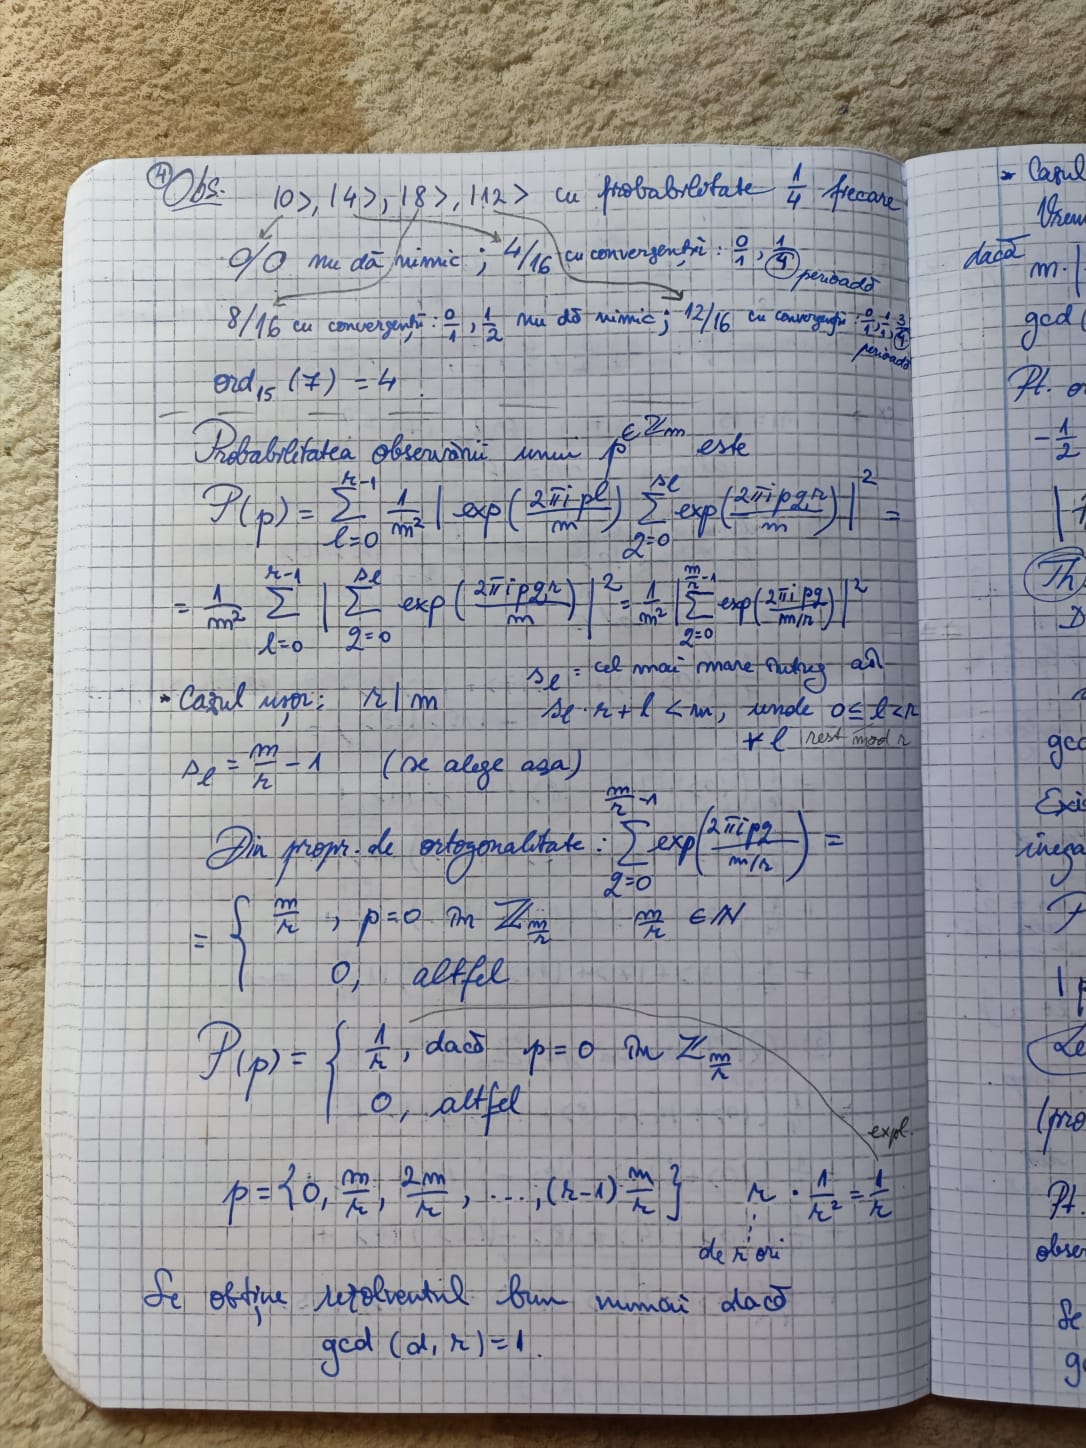 ④ Obs. |0>, |4>, |8>, |12> cu probabilitate 1/4 fiecare
0/0 nu dă nimic ; 4/16 cu convergenții : 0/1, 1/4 perioadă
8/16 cu convergenții : 0/1, 1/2 nu dă nimic ; 12/16 cu convergenții : 0/1, 1/1, 3/4 perioadă
ord₁₅ (7) = 4
Probabilitatea observării unui p ∈ ℤm este
P(p) = Σ_{l=0}^{r-1} 1/m² | exp(2πipl/m) Σ_{q=0}^{s_l} exp(2πipqr/m) |² =
= 1/m² Σ_{l=0}^{r-1} | Σ_{q=0}^{s_l} exp(2πipqr/m) |² = 1/m² | Σ_{q=0}^{m/r-1} exp(2πipq/(m/r)) |²
s_l = cel mai mare întreg aî
* Cazul ușor: r | m
s_l · r + l < m, unde 0 ≤ l < r
∀ l rest mod r
s_l = m/r - 1 (se alege așa)
Din propr. de ortogonalitate : Σ_{q=0}^{m/r-1} exp(2πipq/(m/r)) =
= { m/r , p=0 în ℤ_{m/r} m/r ∈ ℕ
0, altfel
P(p) = { 1/r , dacă p=0 în ℤ_{m/r}
0, altfel
expl.
p = {0, m/r, 2m/r, ..., (r-1) m/r} r · 1/r² = 1/r
de r ori
Se obține rezolventul bun numai dacă
gcd (d, r) = 1.
* Cazul
Vrem
dacă m · |
gcd (
Pt.
- 1/2
|
Th
D
gcd
Exis
inega
|
Le
(pro
Pt.
obser
Se
g